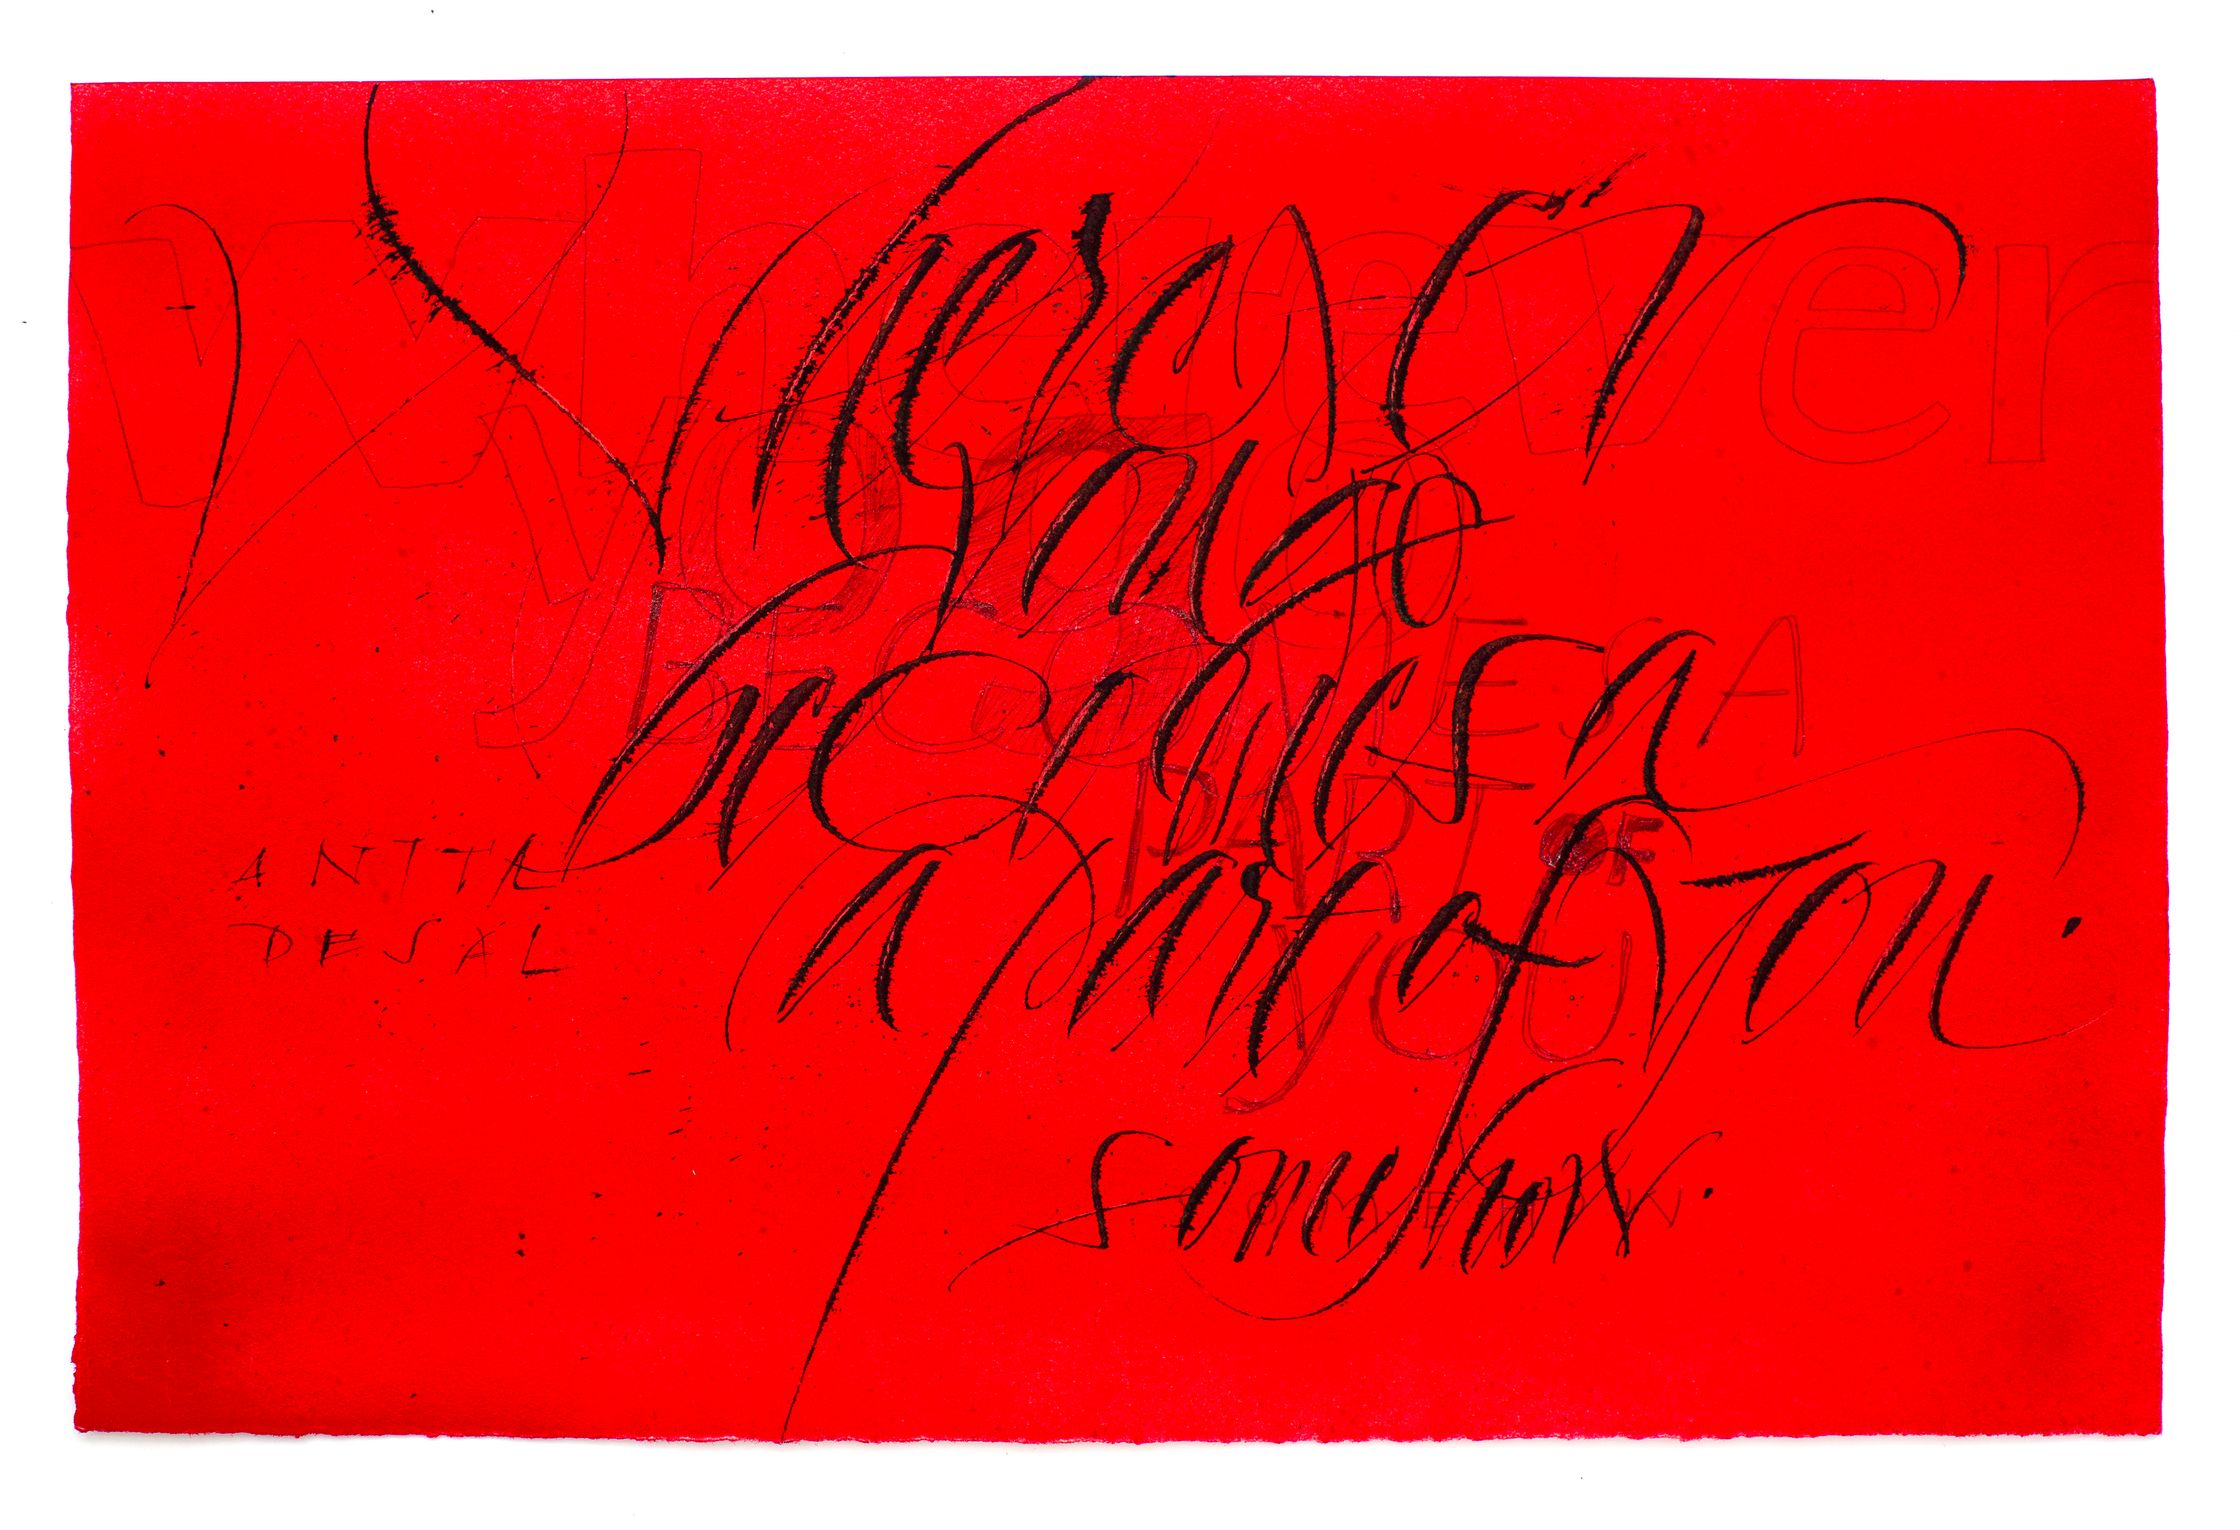 Wherever
you go
becomes a
a part of you.
somehow.
ANITA
DESAI
wherever
you go
BECOMES A
PART OF
YOU
SOMEHOW